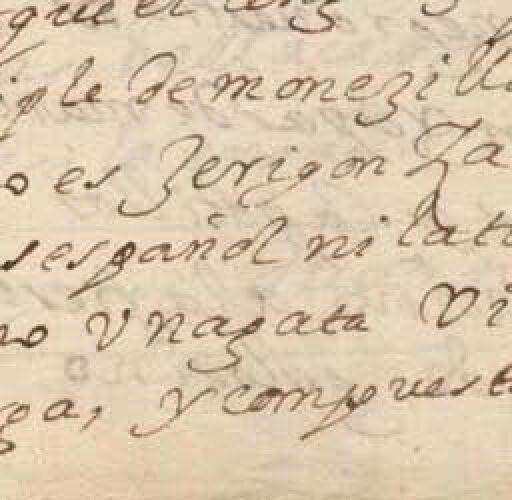 que el
iple de monezill
o es zerigon Za
s español ni lati
no vna gata vi
ga, y compuest